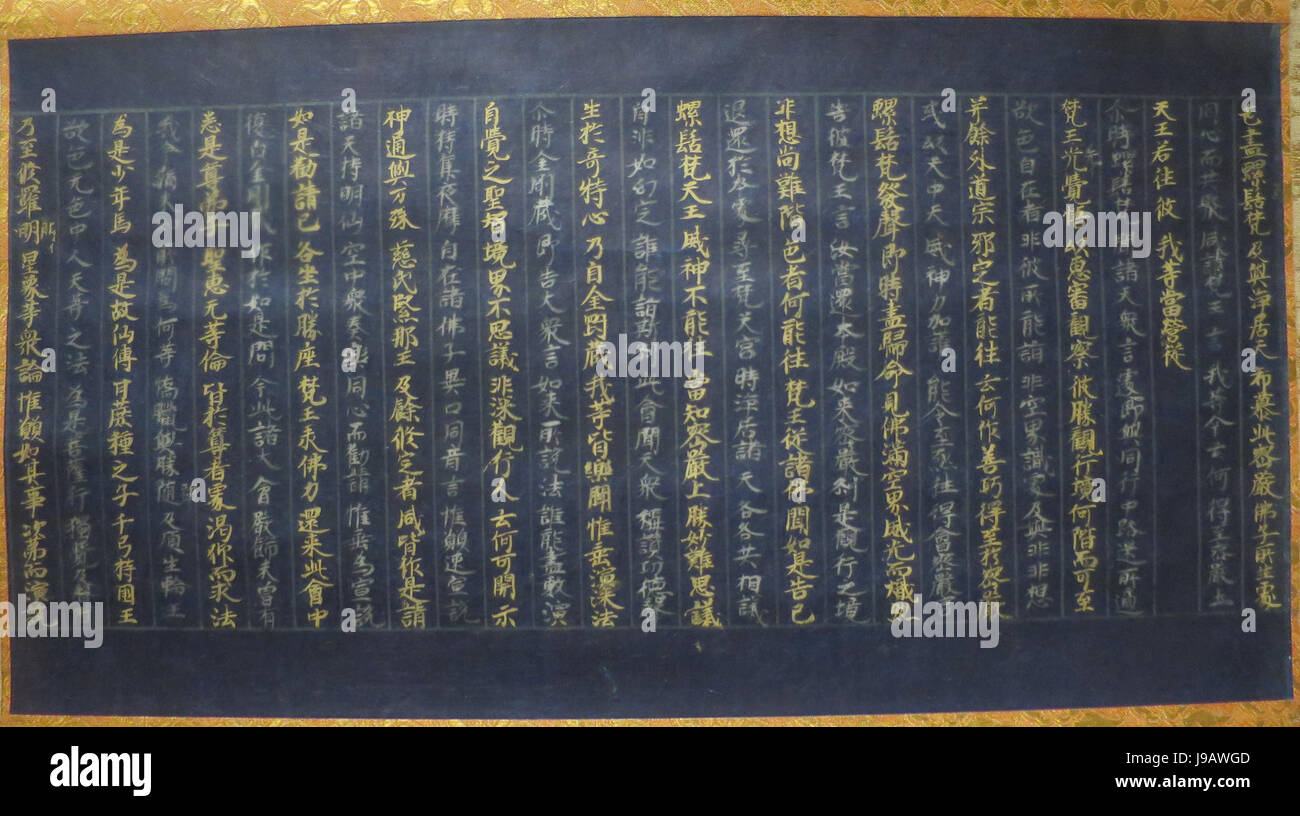 色盡螺髻梵 及與淨居天 希慕此密嚴 佛子所生處
同心而共聚 咸請梵王言 我等今云何 得至密嚴土
天王若往彼 我等當營從
尒時螺髻梵聞諸天衆言遽即與同行中路迷所適
梵王先覺悟以慧審觀察彼勝觀行境何階而可至
欲色自在者非彼所能詣非空界識處及與非非想
并餘外道宗邪定者能往云何作善巧得至於密嚴
或以天中天威神力加護能令至往得會密嚴
螺髻梵發聲即時盡歸命見佛滿空界威光而熾盛
告彼梵王言汝當還本殿如来密嚴刹是觀行之境
非想尚難階色者何能往梵王從諸佛聞如是告已
退還於本處尋至梵天宮時淨居諸天各各共相議
螺髻梵天王威神不能往當知密嚴土勝妙難思議
自非如幻定誰能詣斯刹此會聞天衆稱讚功德
生於奇特心乃白金剛藏我等皆樂聞惟垂演深法
尒時金剛藏即告大衆言如来所說法誰能盡敷演
自覺之聖智境界不思議非深觀行人云何可開示
時持進夜摩自在諸佛子異口同音言惟願速宣說
神通與万殊慈氏緊那王及餘修定者咸皆作是請
諸天持明仙空中衆奏樂同心而勸請惟垂為宣說
如是勸請已各坐於勝座梵王承佛力還来此會中
復白金剛於如是問今此諸大會嚴飾未曾有
悉是尊弟子聖慧无等倫皆於尊者家渴仰而求法
我今猶所問為何等憍臘與勝墮及頂生輪王
為是少年馬為是古仙傳甘蔗種之子千弓持國王
欲色无色中人天等之法為是菩薩行獨覺及聲
乃至修羅明星象等衆論惟願如其事次第而演說
alamy stock photo
J9AWGD
www.alamy.com